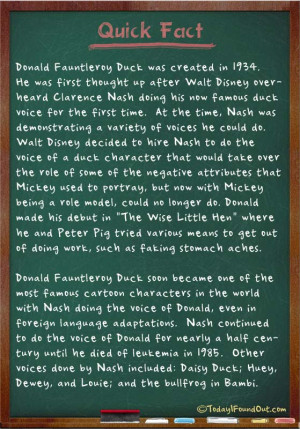 Quick Fact
Donald Fauntleroy Duck was created in 1934.
He was first thought up after Walt Disney over-
heard Clarence Nash doing his now famous duck
voice for the first time. At the time, Nash was
demonstrating a variety of voices he could do.
Walt Disney decided to hire Nash to do the
voice of a duck character that would take over
the role of some of the negative attributes that
Mickey used to portray, but now with Mickey
being a role model, could no longer do. Donald
made his debut in "The Wise Little Hen" where
he and Peter Pig tried various means to get out
of doing work, such as faking stomach aches.
Donald Fauntleroy Duck soon became one of the
most famous cartoon characters in the world
with Nash doing the voice of Donald, even in
foreign language adaptations. Nash continued
to do the voice of Donald for nearly a half cen-
tury until he died of leukemia in 1985. Other
voices done by Nash included: Daisy Duck; Huey,
Dewey, and Louie; and the bullfrog in Bambi.
©TodayIFoundOut.com